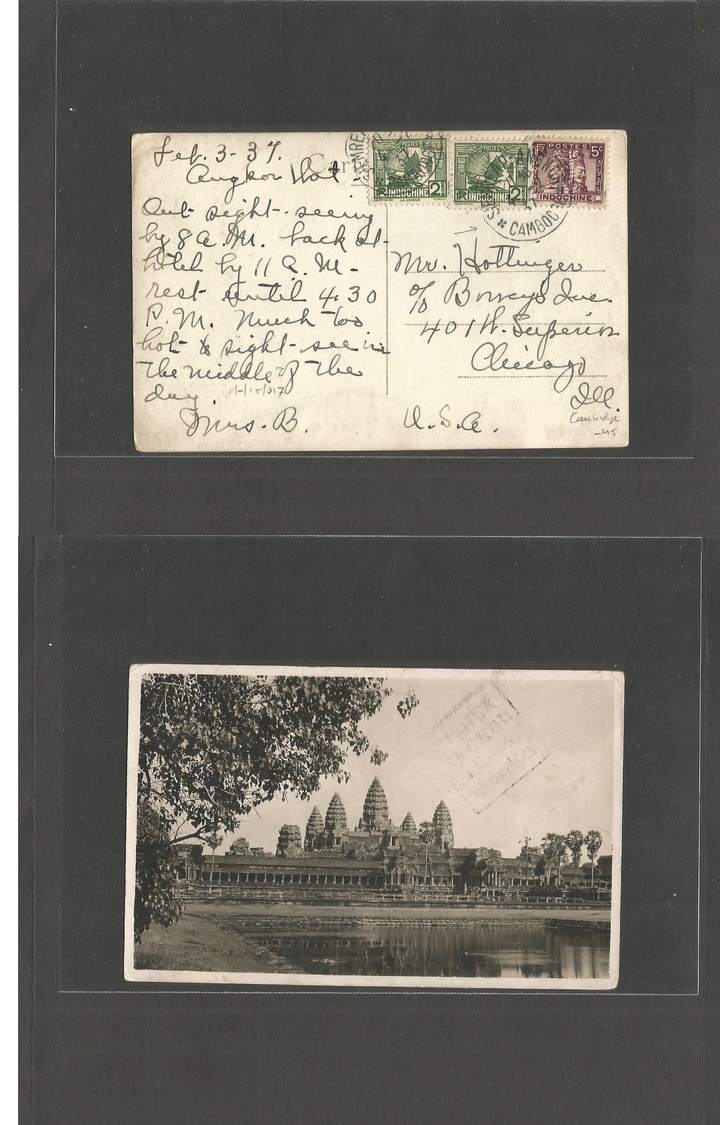 Feb. 3-37.
Angkor Wat
Out sight-seeing
by 8 A.M. back at
hotel by 11 A.M-
rest until 4.30
P.M. Much too
hot to sight-see in
the middle of the
day.
Mrs. B.
POSTES 2
INDOCHINE
POSTES 2
INDOCHINE
POSTES 5c
INDOCHINE
CAMBODGE
Mr. Hottinger
c/o
401 W. Superior
Chicago
Ill.
U.S.A.
Cambodge